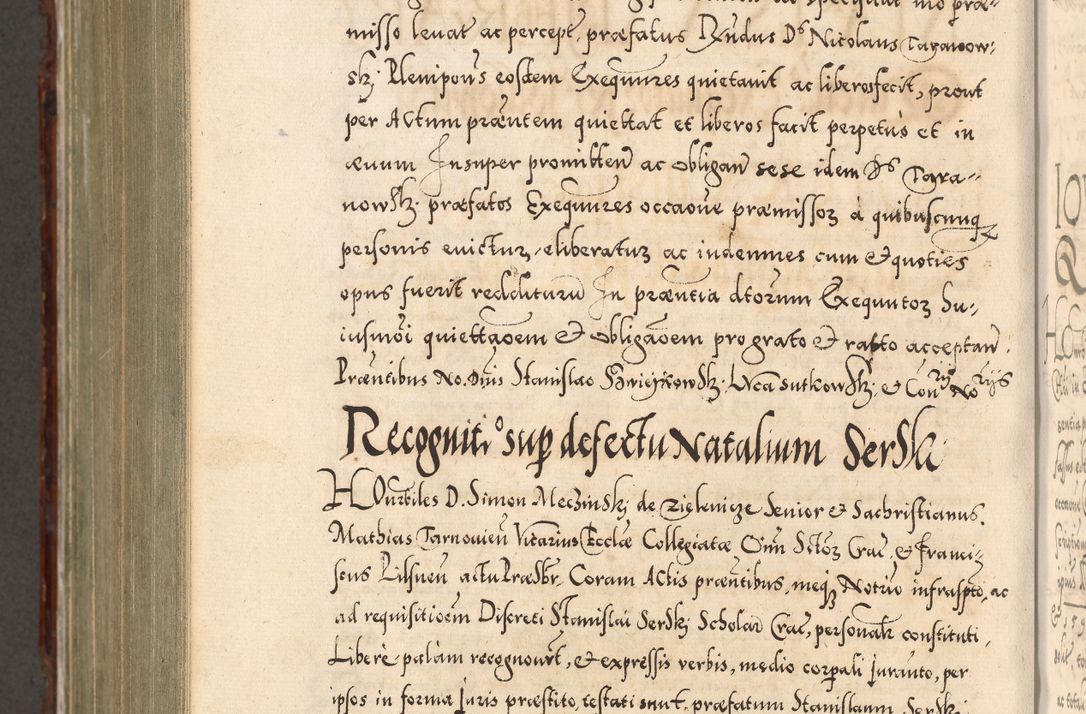 misso leuat ac percept, præfatus Rndus Ds Nicolaus Taranow:
skj. Plenipous eosdem Exequutres quietauit ac liberosfecit, prout
per Actum præntem quiettat et liberos facit perpetuò et in
æuum Insuper promitten ac obligan sese idem Ds Tara-
nowskj. præfatos Exequutres occaoue præmissoz à quibuscunqz
personis euictuz, eliberatuz ac indemnes cum & quoties
opus fuerit redditurũ In præntia dtorum Exequutoz hu-
iusmoi quiettaoem & obligaoem pro grato & rato acceptan.
Præntibus No. Dnis Stanislao Luca Sutkowskj. & Con rijs No rijs
Recogniti.o sup defectu Natalium Serski
HOnrbiles D. Simon Meczinskj de Zielenicze Senior & Sachristianus.
Mathias Tarnouien Vicarius Ecclæ Collegiatæ Oim Sctoz Crac, & Franci-
scus Pilsnen actu Præsbr, Coram Actis præntibus, meqz Notrio infraspto, ac
ad requisitioem Discreti Stanislai Serskj Scholar Crac, personalr constituti,
Liberè palàm recognourt, & expressis verbis, medio corpali Juranto, per
ipsos in forma Juris præstito, testati sunt præfatum Stanislaum Serski